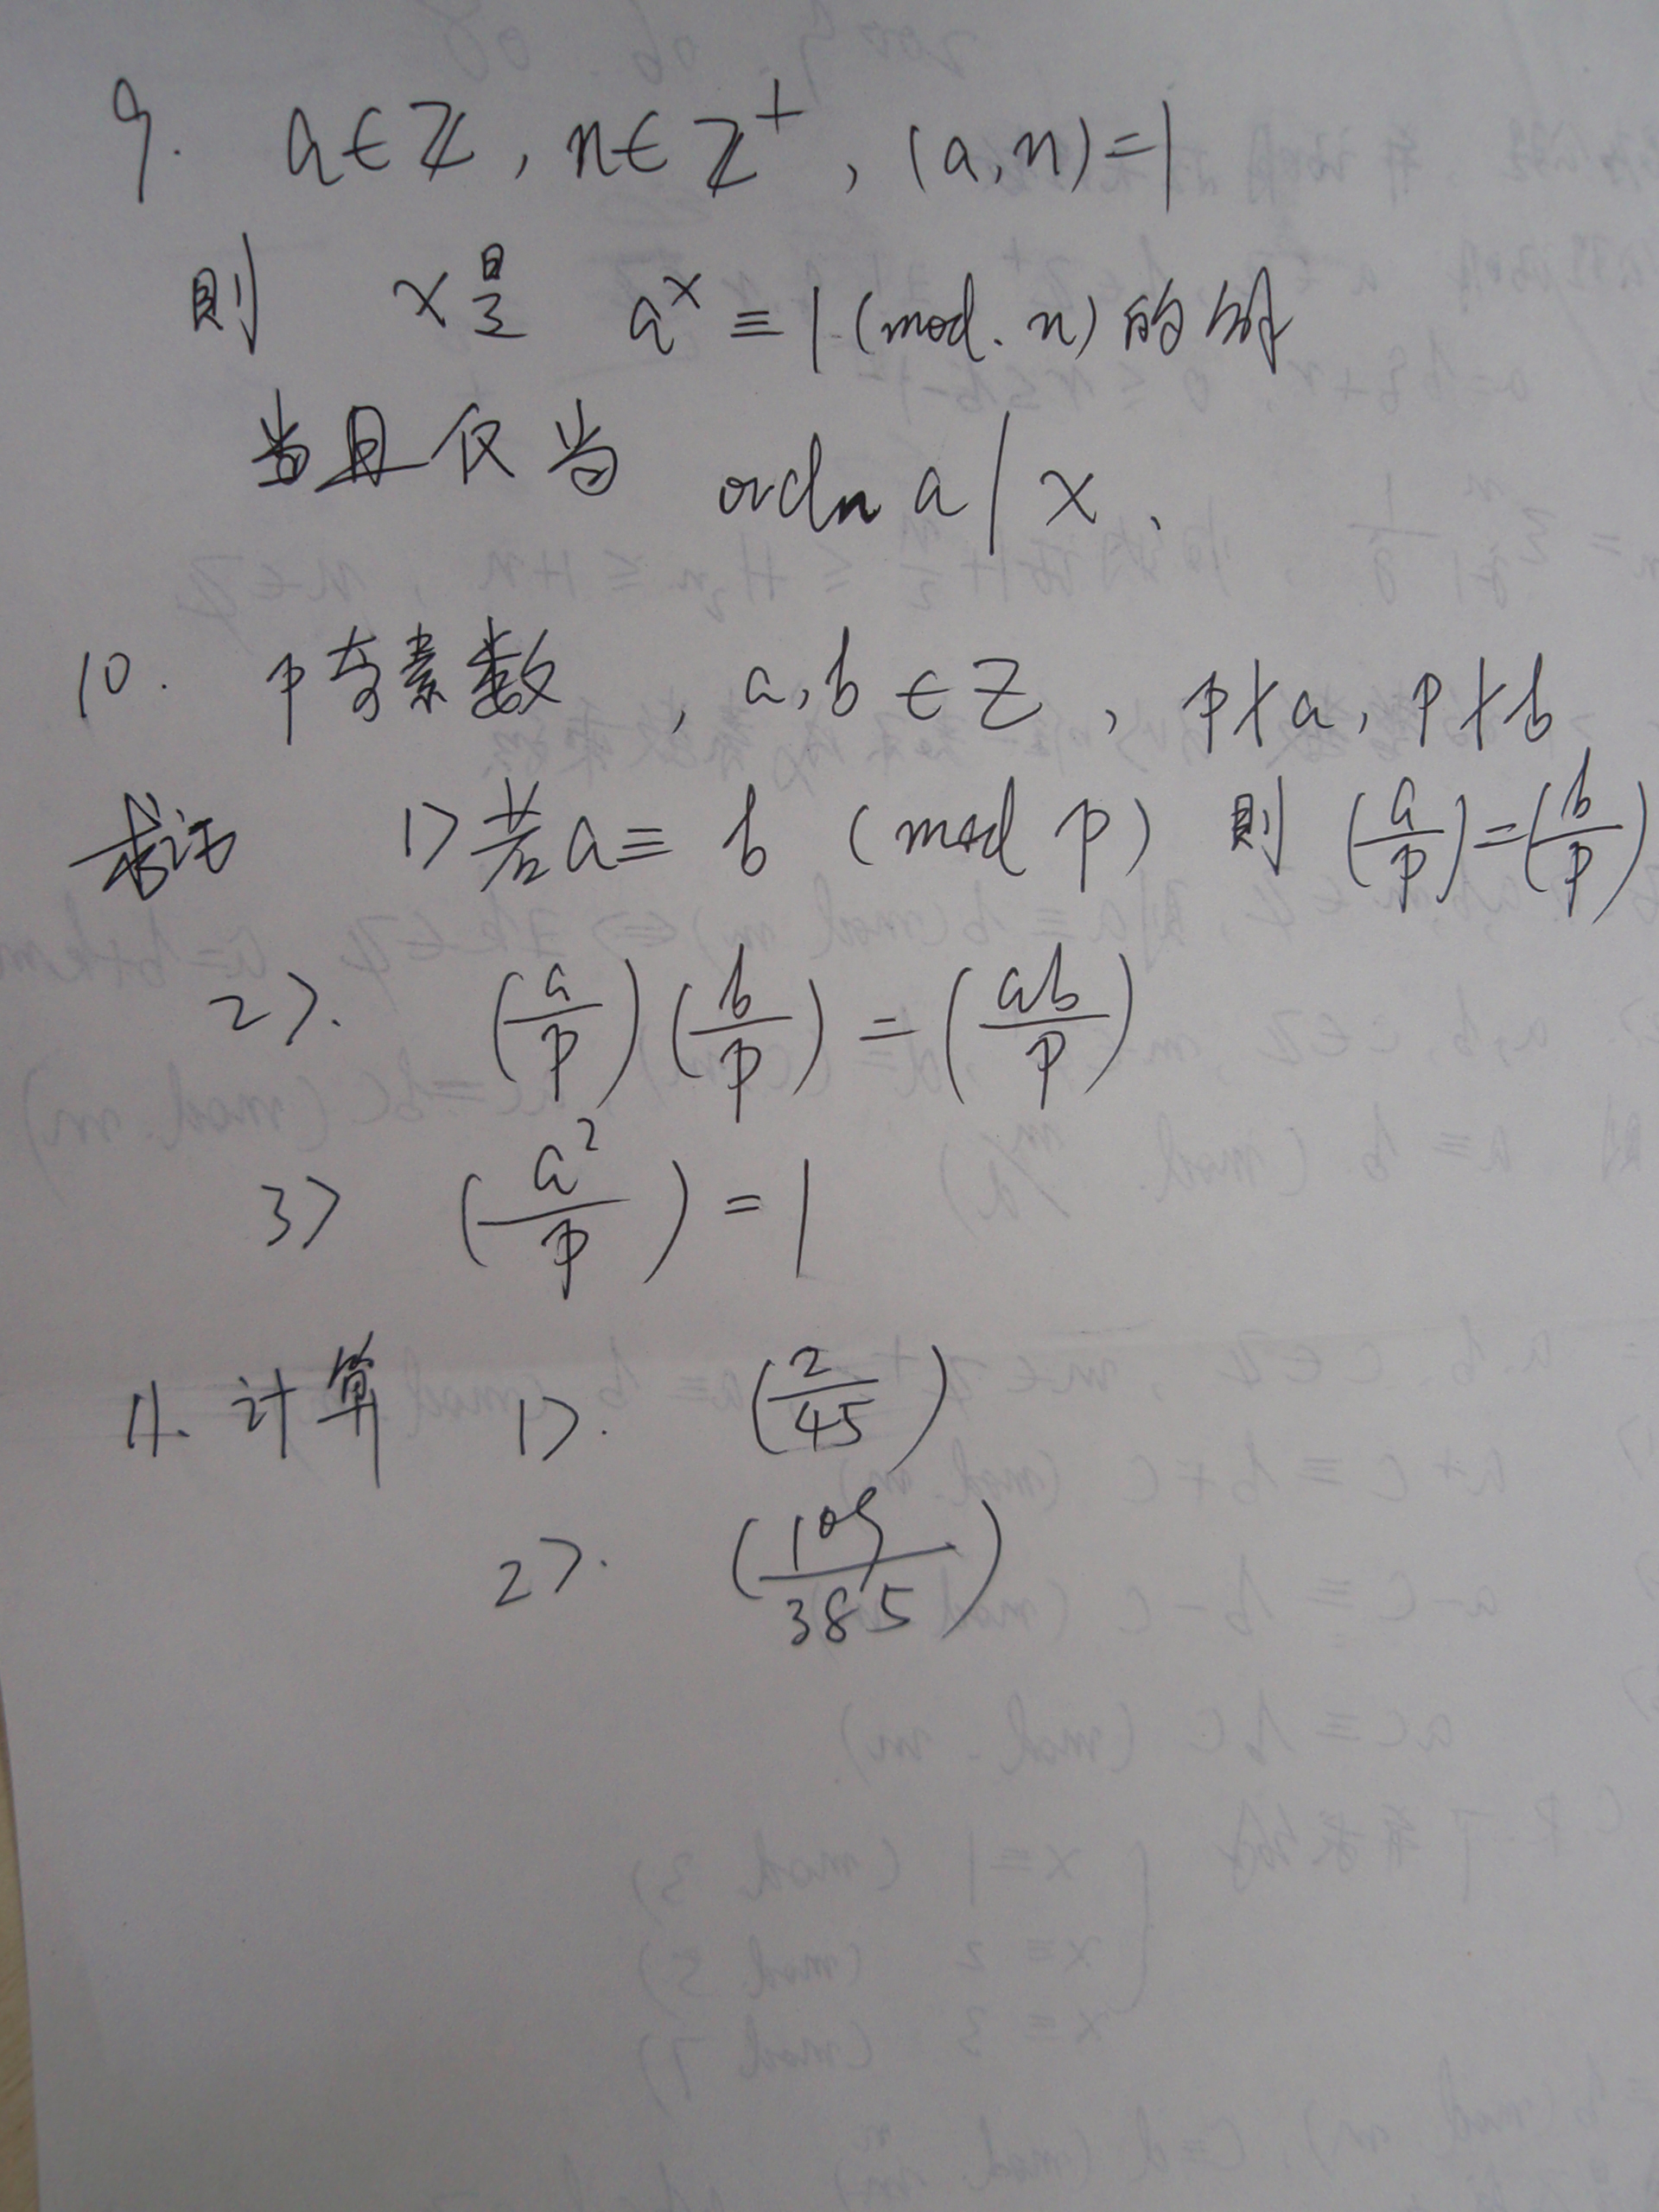 9. a∈Z, n∈Z⁺, (a,n)=1
則 x是 aˣ≡1(mod. n)的解
当且仅当 ordₙ a | x.
10. p奇素数, a,b∈Z, p∤a, p∤b
求证 1> 若a≡b (mod p) 則 (a/p)=(b/p)
2>. (a/p)(b/p)=(ab/p)
3> (a²/p)=1
11. 计算 1>. (2/45)
2>. (109/385)